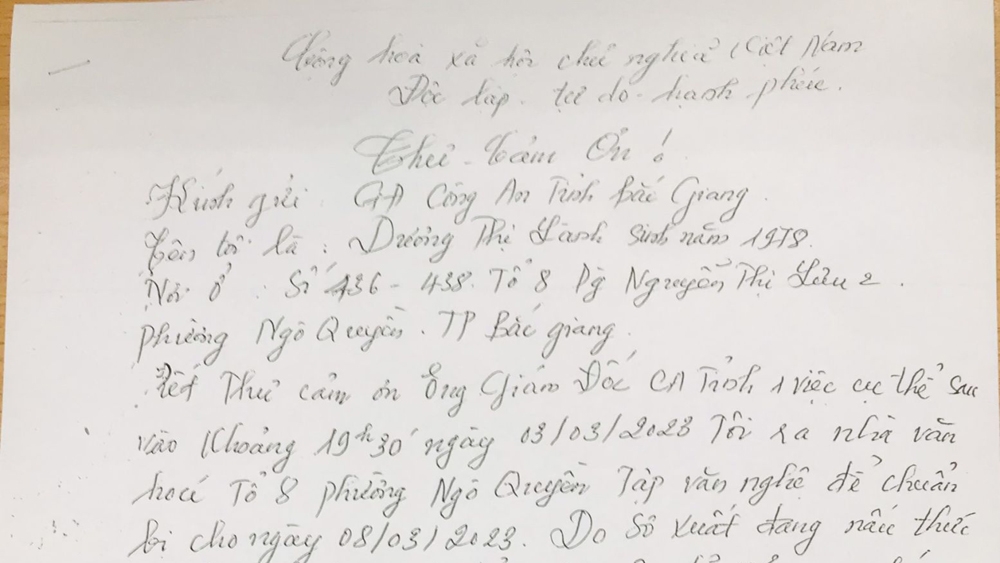 Cộng hoà xã hội chủ nghĩa Việt Nam
Độc lập - tự do - hạnh phúc.
Thư cảm Ơn!
Kính gửi: GĐ Công An Tỉnh Bắc Giang
Tên tôi là: Dương Thị Lành sinh năm 1978.
Nơi ở: Số 436 - 438. Tổ 8 Đg Nguyễn Thị Lưu 2.
phường Ngô Quyền. TP Bắc giang.
Viết Thư cảm ơn Ông Giám Đốc CA Tỉnh 1 việc cụ thể sau
vào Khoảng 19h30' ngày 03/03/2023 Tôi ra nhà văn
hoá Tổ 8 phường Ngô Quyền Tập văn nghệ để chuẩn
bị cho ngày 08/03/2023. Do Sơ xuất đang nấu thức